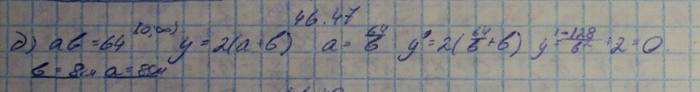 46.47
д) ab = 64 [0;∞) y = 2(a+b) a = 64/b y = 2(64/b + b) y' = -128/b² + 2 = 0
b = 8см a = 8см